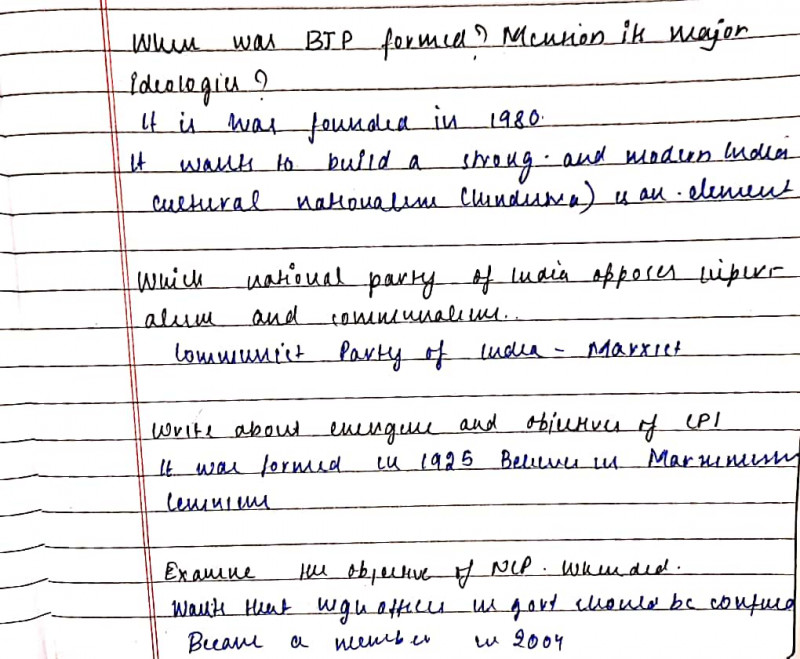 When was BJP formed? Mention its major
Ideologies?
It is was founded in 1980.
It wants to build a strong. and modern India
cultural nationalism (Hindutva) is an. element
Which national party of India opposes imperi-
alism and communalism..
Communist Party of India - Marxist
Write about emergence and objectives of CPI
It was formed in 1925 Believes in Marxism
Leninism
Examine the objective of NCP. When did.
Wants that high offices in govt should be confined
Became a member in 2004